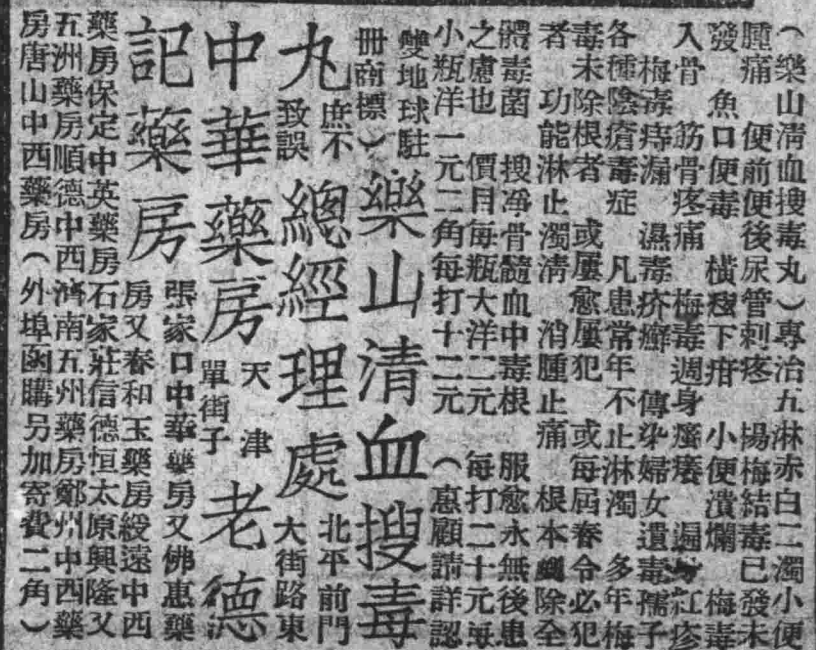 （樂山淸血搜毒丸）專治九淋赤白二濁小便
腫痛　便前便後尿管刺疼　楊梅結毒已發未
發　魚口便毒　橫痃下疳　小便潰爛　梅毒
入骨　筋骨疼痛　梅毒週身癢　遍身紅疹
梅毒痔漏　濕毒疥癬　傳染婦女遺毒孺子
各種陰瘡毒症　凡患常年不止淋濁　多年梅
毒未除根者　或屢愈屢犯　或每屆春令必犯
者　功能淋止濁淸　消腫止痛　根本除全
體毒菌　搜凈骨髓血中毒根　服愈永無後患
之慮也　價目每瓶大洋二元　每打二十元
小瓶洋一元二角每打十二元　（惠顧請詳認
雙地球駐
冊商標）樂山清血搜毒
丸
庶不
致誤
總經理處
北平前門
大街路東
中華藥房
天津
單街子
老德
記藥房
張家口中華藥房又佛惠藥
房又春和玉藥房綏遠中西
藥房保定中英藥房石家莊信德恒太原興隆又
五洲藥房順德中西濟南五州藥房鄭州中西藥
房唐山中西藥房（外埠函購另加寄費二角）